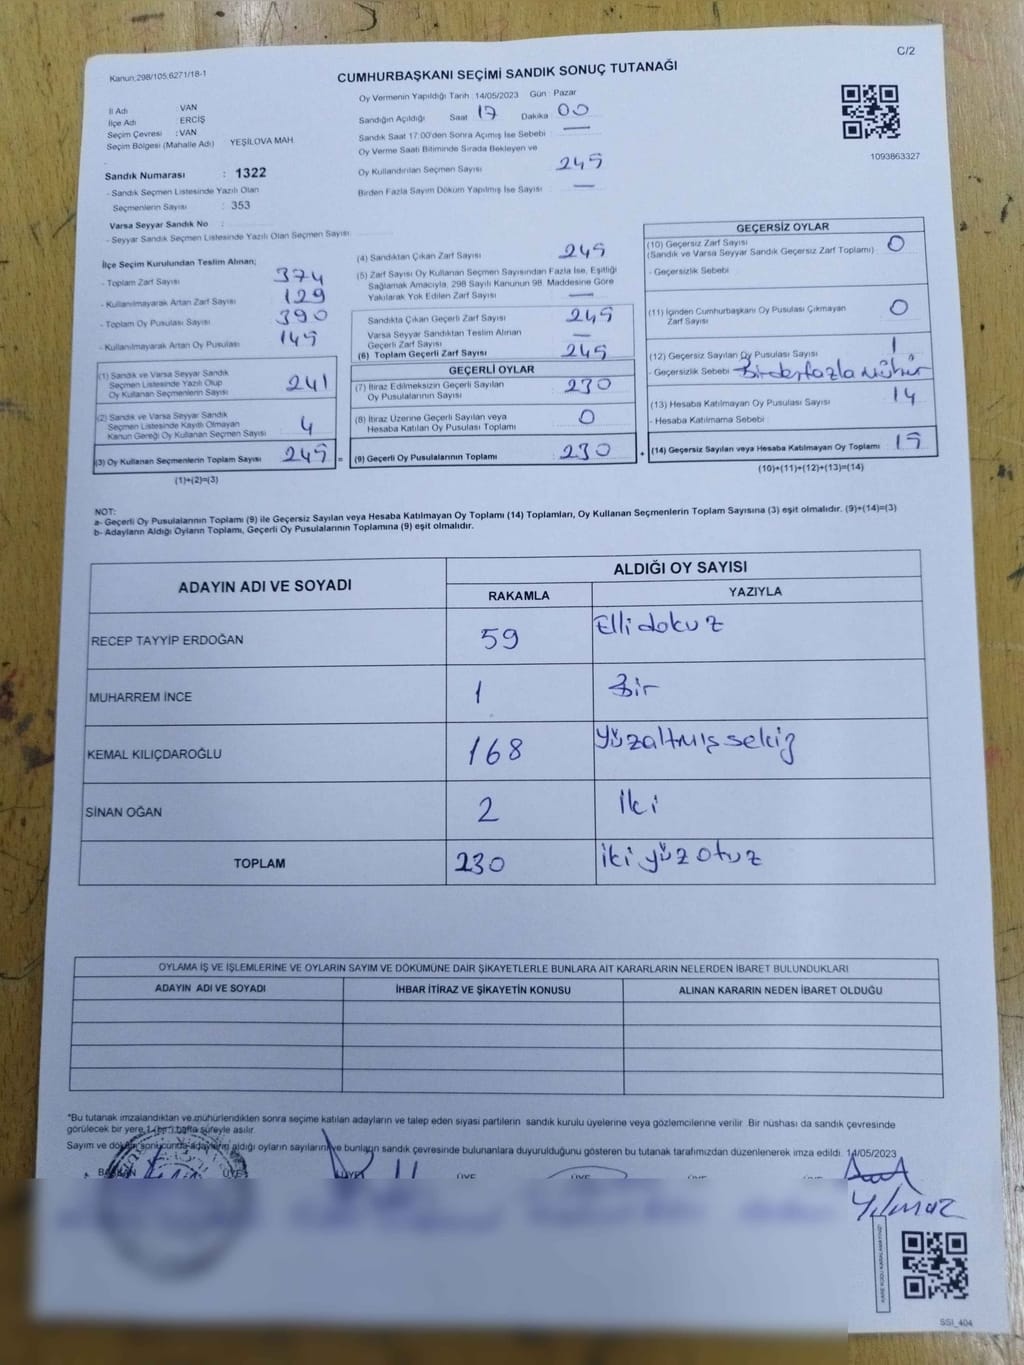 C/2
Kanun:298/105,6271/18-1
CUMHURBAŞKANI SEÇİMİ SANDIK SONUÇ TUTANAĞI
İl Adı : VAN
İlçe Adı : ERCİŞ
Seçim Çevresi : VAN
Seçim Bölgesi (Mahalle Adı) YEŞİLOVA MAH
Sandık Numarası : 1322
- Sandık Seçmen Listesinde Yazılı Olan
Seçmenlerin Sayısı : 353
Varsa Seyyar Sandık No :
- Seyyar Sandık Seçmen Listesinde Yazılı Olan Seçmen Sayısı
Oy Vermenin Yapıldığı Tarih : 14/05/2023 Gün : Pazar
Sandığın Açıldığı Saat 17 Dakika 00
Sandık Saat 17:00'den Sonra Açımış İse Sebebi —
Oy Verme Saati Bitiminde Sırada Bekleyen ve
Oy Kullandırılan Seçmen Sayısı 245
Birden Fazla Sayım Döküm Yapılmış İse Sayısı —
1093863327
İlçe Seçim Kurulundan Teslim Alınan;
- Toplam Zarf Sayısı 374
- Kullanılmayarak Artan Zarf Sayısı 129
- Toplam Oy Pusulası Sayısı 390
- Kullanılmayarak Artan Oy Pusulası 145
(1) Sandık ve Varsa Seyyar Sandık
Seçmen Listesinde Yazılı Olup
Oy Kullanan Seçmenlerin Sayısı 241
(2) Sandık ve Varsa Seyyar Sandık
Seçmen Listesinde Kayıtlı Olmayan
Kanun Gereği Oy Kullanan Seçmen Sayısı 4
(3) Oy Kullanan Seçmenlerin Toplam Sayısı 245 =
(1)+(2)=(3)
(4) Sandıktan Çıkan Zarf Sayısı 245
(5) Zarf Sayısı Oy Kullanan Seçmen Sayısından Fazla İse, Eşitliği
Sağlamak Amacıyla, 298 Sayılı Kanunun 98. Maddesine Göre
Yakılarak Yok Edilen Zarf Sayısı —
Sandıkta Çıkan Geçerli Zarf Sayısı 245
Varsa Seyyar Sandıktan Teslim Alınan
Geçerli Zarf Sayısı —
(6) Toplam Geçerli Zarf Sayısı 245
GEÇERLİ OYLAR
(7) İtiraz Edilmeksizin Geçerli Sayılan
Oy Pusulalarının Sayısı 230
(8) İtiraz Üzerine Geçerli Sayılan veya
Hesaba Katılan Oy Pusulası Toplamı 0
(9) Geçerli Oy Pusulalarının Toplamı 230 +
GEÇERSİZ OYLAR
(10) Geçersiz Zarf Sayısı 0
(Sandık ve Varsa Seyyar Sandık Geçersiz Zarf Toplamı)
- Geçersizlik Sebebi
(11) İçinden Cumhurbaşkanı Oy Pusulası Çıkmayan
Zarf Sayısı 0
(12) Geçersiz Sayılan Oy Pusulası Sayısı 1
- Geçersizlik Sebebi Birden fazla mühür
(13) Hesaba Katılmayan Oy Pusulası Sayısı 14
- Hesaba Katılmama Sebebi
(14) Geçersiz Sayılan veya Hesaba Katılmayan Oy Toplamı 15
(10)+(11)+(12)+(13)=(14)
NOT:
a- Geçerli Oy Pusulalarının Toplamı (9) ile Geçersiz Sayılan veya Hesaba Katılmayan Oy Toplamı (14) Toplamları, Oy Kullanan Seçmenlerin Toplam Sayısına (3) eşit olmalıdır. (9)+(14)=(3)
b- Adayların Aldığı Oyların Toplamı, Geçerli Oy Pusulalarının Toplamına (9) eşit olmalıdır.
ADAYIN ADI VE SOYADI
ALDIĞI OY SAYISI
RAKAMLA YAZIYLA
RECEP TAYYİP ERDOĞAN 59 Elli dokuz
MUHARREM İNCE 1 Bir
KEMAL KILIÇDAROĞLU 168 Yüzaltmış sekiz
SİNAN OĞAN 2 İki
TOPLAM 230 iki yüz otuz
OYLAMA İŞ VE İŞLEMLERİNE VE OYLARIN SAYIM VE DÖKÜMÜNE DAİR ŞİKAYETLERLE BUNLARA AİT KARARLARIN NELERDEN İBARET BULUNDUKLARI
ADAYIN ADI VE SOYADI İHBAR İTİRAZ VE ŞİKAYETİN KONUSU ALINAN KARARIN NEDEN İBARET OLDUĞU
*Bu tutanak imzalandıktan ve mühürlendikten sonra seçime katılan adayların ve talep eden siyasi partilerin sandık kurulu üyelerine veya gözlemcilerine verilir. Bir nüshası da sandık çevresinde
görülecek bir yere 1 (bir) hafta süreyle asılır.
Sayım ve döküm sonucunda adayların aldığı oyların sayılarını ve bunların sandık çevresinde bulunanlara duyurulduğunu gösteren bu tutanak tarafımızdan düzenlenerek imza edildi. 14/05/2023
BAŞKAN ÜYE ÜYE ÜYE ÜYE
Yılmaz
SSI_404